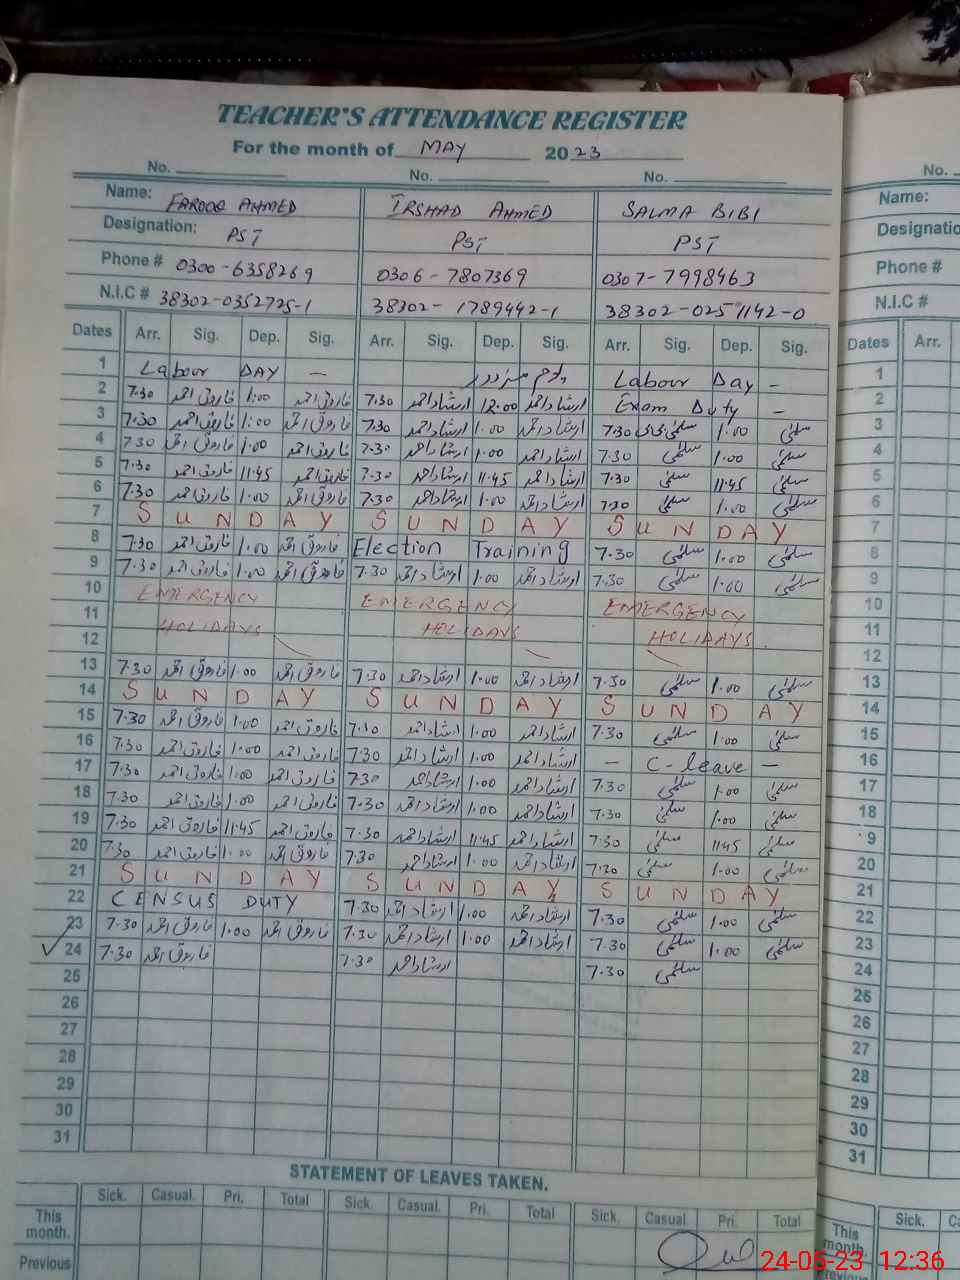 TEACHER'S ATTENDANCE REGISTER
For the month of MAY 2023
No. No. No. No.
Name: FAROOQ AHMED IRSHAD AHMED SALMA BIBI Name:
Designation: PST PST PST Designatio
Phone # 0300-6358269 0306-7807369 0307-7998463 Phone #
N.I.C # 38302-0352725-1 38302-1789442-1 38302-0257142-0 N.I.C #
Dates Arr. Sig. Dep. Sig. Arr. Sig. Dep. Sig. Arr. Sig. Dep. Sig. Dates Arr.
1 Labour DAY — یوم مزدور Labour Day — 1
2 7.30 فاروق احمد 1:00 فاروق احمد 7.30 ارشاد احمد 12.00 ارشاد احمد Exam Duty — 2
3 7.30 فاروق احمد 1:00 فاروق احمد 7.30 ارشاد احمد 1.00 ارشاد احمد 7.30 سلمیٰ بی بی 1.00 سلمیٰ 3
4 7.30 فاروق احمد 1.00 فاروق احمد 7.30 ارشاد احمد 1.00 ارشاد احمد 7.30 سلمیٰ 1.00 سلمیٰ 4
5 7.30 فاروق احمد 11.45 فاروق احمد 7.30 ارشاد احمد 11.45 ارشاد احمد 7.30 سلمیٰ 11.45 سلمیٰ 5
6 7.30 فاروق احمد 1.00 فاروق احمد 7.30 ارشاد احمد 1.00 ارشاد احمد 7.30 سلمیٰ 1.00 سلمیٰ 6
7 SUNDAY SUNDAY SUNDAY 7
8 7.30 فاروق احمد 1.00 فاروق احمد Election Training 7.30 سلمیٰ 1.00 سلمیٰ 8
9 7.30 فاروق احمد 1.00 فاروق احمد 7.30 ارشاد احمد 1.00 ارشاد احمد 7.30 سلمیٰ 1.00 سلمیٰ 9
10 EMERGENCY EMERGENCY EMERGENCY 10
11 HOLIDAYS HOLIDAYS HOLIDAYS 11
12 12
13 7.30 فاروق احمد 1.00 فاروق احمد 7.30 ارشاد احمد 1.00 ارشاد احمد 7.30 سلمیٰ 1.00 سلمیٰ 13
14 SUNDAY SUNDAY SUNDAY 14
15 7.30 فاروق احمد 1.00 فاروق احمد 7.30 ارشاد احمد 1.00 ارشاد احمد 7.30 سلمیٰ 1.00 سلمیٰ 15
16 7.30 فاروق احمد 1.00 فاروق احمد 7.30 ارشاد احمد 1.00 ارشاد احمد — C-leave — 16
17 7.30 فاروق احمد 1.00 فاروق احمد 7.30 ارشاد احمد 1.00 ارشاد احمد 7.30 سلمیٰ 1.00 سلمیٰ 17
18 7.30 فاروق احمد 1.00 فاروق احمد 7.30 ارشاد احمد 1.00 ارشاد احمد 7.30 سلمیٰ 1.00 سلمیٰ 18
19 7.30 فاروق احمد 11.45 فاروق احمد 7.30 ارشاد احمد 11.45 ارشاد احمد 7.30 سلمیٰ 1145 سلمیٰ 9
20 7.30 فاروق احمد 1.00 فاروق احمد 7.30 ارشاد احمد 1.00 ارشاد احمد 7.30 سلمیٰ 1.00 سلمیٰ 20
21 SUNDAY SUNDAY SUNDAY 21
22 CENSUS DUTY 7.30 ارشاد احمد 1.00 ارشاد احمد 7.30 سلمیٰ 1.00 سلمیٰ 22
23 7.30 فاروق احمد 1.00 فاروق احمد 7.30 ارشاد احمد 1.00 ارشاد احمد 7.30 سلمیٰ 1.00 سلمیٰ 23
✓ 24 7.30 فاروق احمد 7.30 ارشاد احمد 7.30 سلمیٰ 24
25 25
26 26
27 27
28 28
29 29
30 30
31 31
STATEMENT OF LEAVES TAKEN.
Sick. Casual. Pri. Total Sick. Casual. Pri. Total Sick. Casual. Pri. Total Sick. C
This month. This month.
Previous Previous
24-05-23 12:36